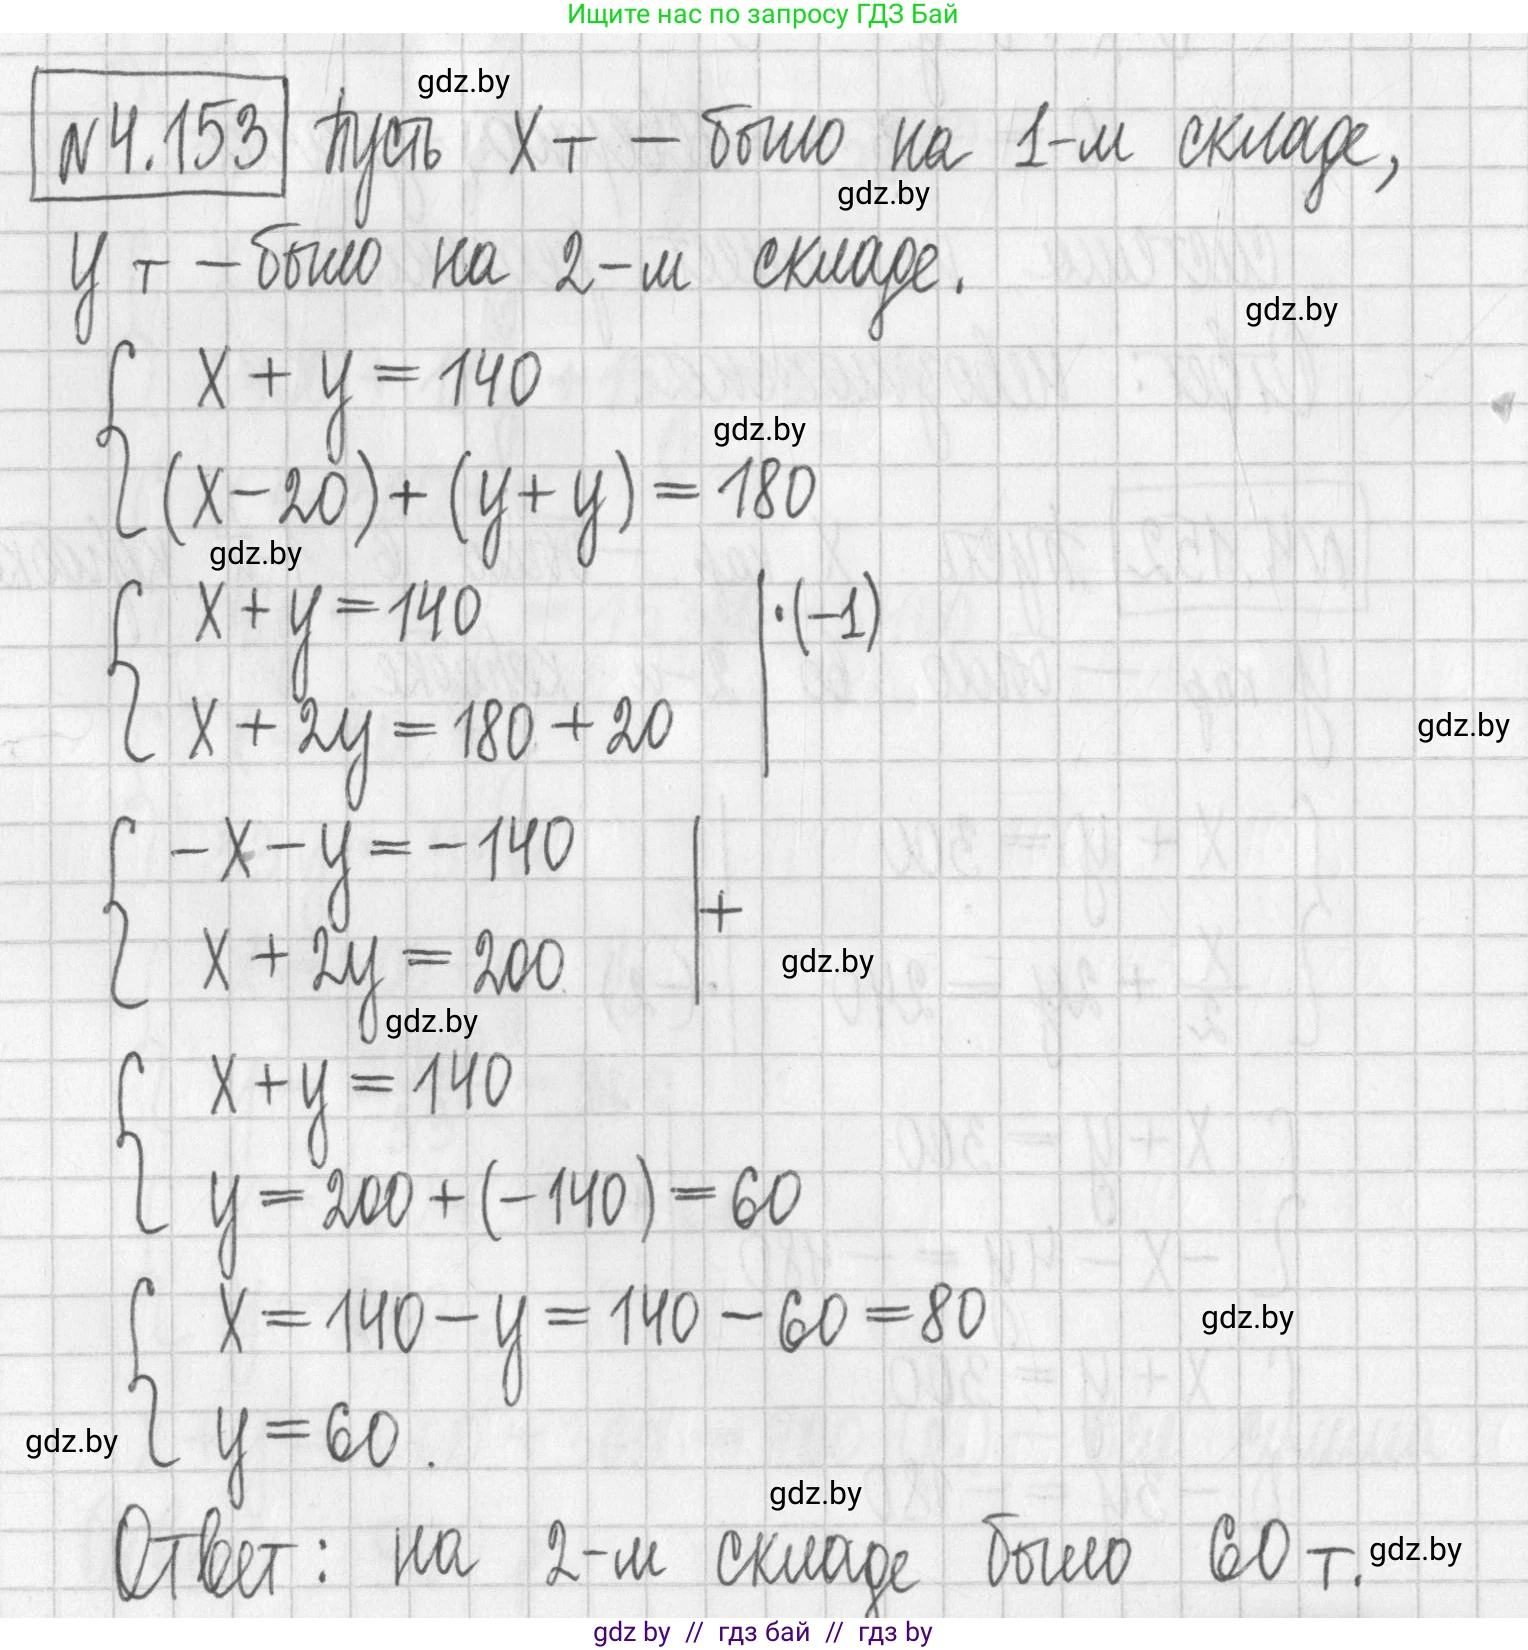 Ищите нас по запросу ГДЗ Бай
gdz.by
№4.153 Пусть x т – было на 1-м складе,
gdz.by
y т – было на 2-м складе.
gdz.by
x + y = 140
gdz.by
(x-20)+(y+y)=180
gdz.by
x+y=140 |·(-1)
x+2y=180+20
gdz.by
-x-y=-140
+
x+2y=200
gdz.by
gdz.by
x+y=140
y=200+(-140)=60
x=140-y=140-60=80
gdz.by
y=60.
gdz.by
gdz.by
Ответ: на 2-м складе было 60 т.
gdz.by
gdz by // гдз бай // гдз by